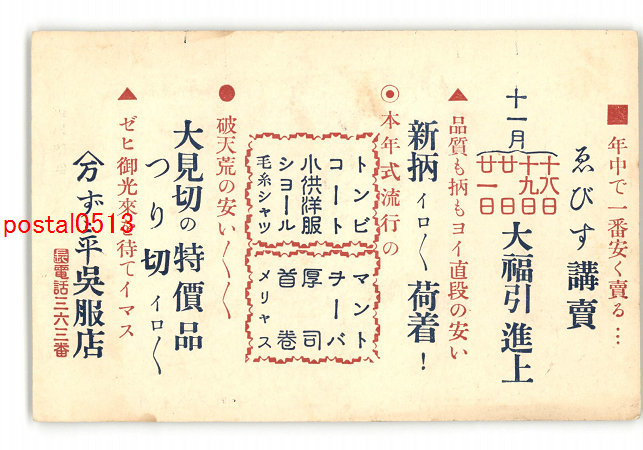 ■年中で一番安く賣る…
ゑびす講賣
十一月
十八日
十九日
廿日
廿一日
大福引進上
▲品質も柄もヨイ直段の安い
新柄イロ〱荷着!
◉本年式流行の
トンビ
コート
小供洋服
ショール
毛糸シャツ
マント
チーバ
厚司
首卷
メリヤス
●破天荒の安い〱〱
大見切の特價品
つり切イロ〱
▲ゼヒ御光來を待てイマス
ず平吳服店
電話三六三番
postal0513